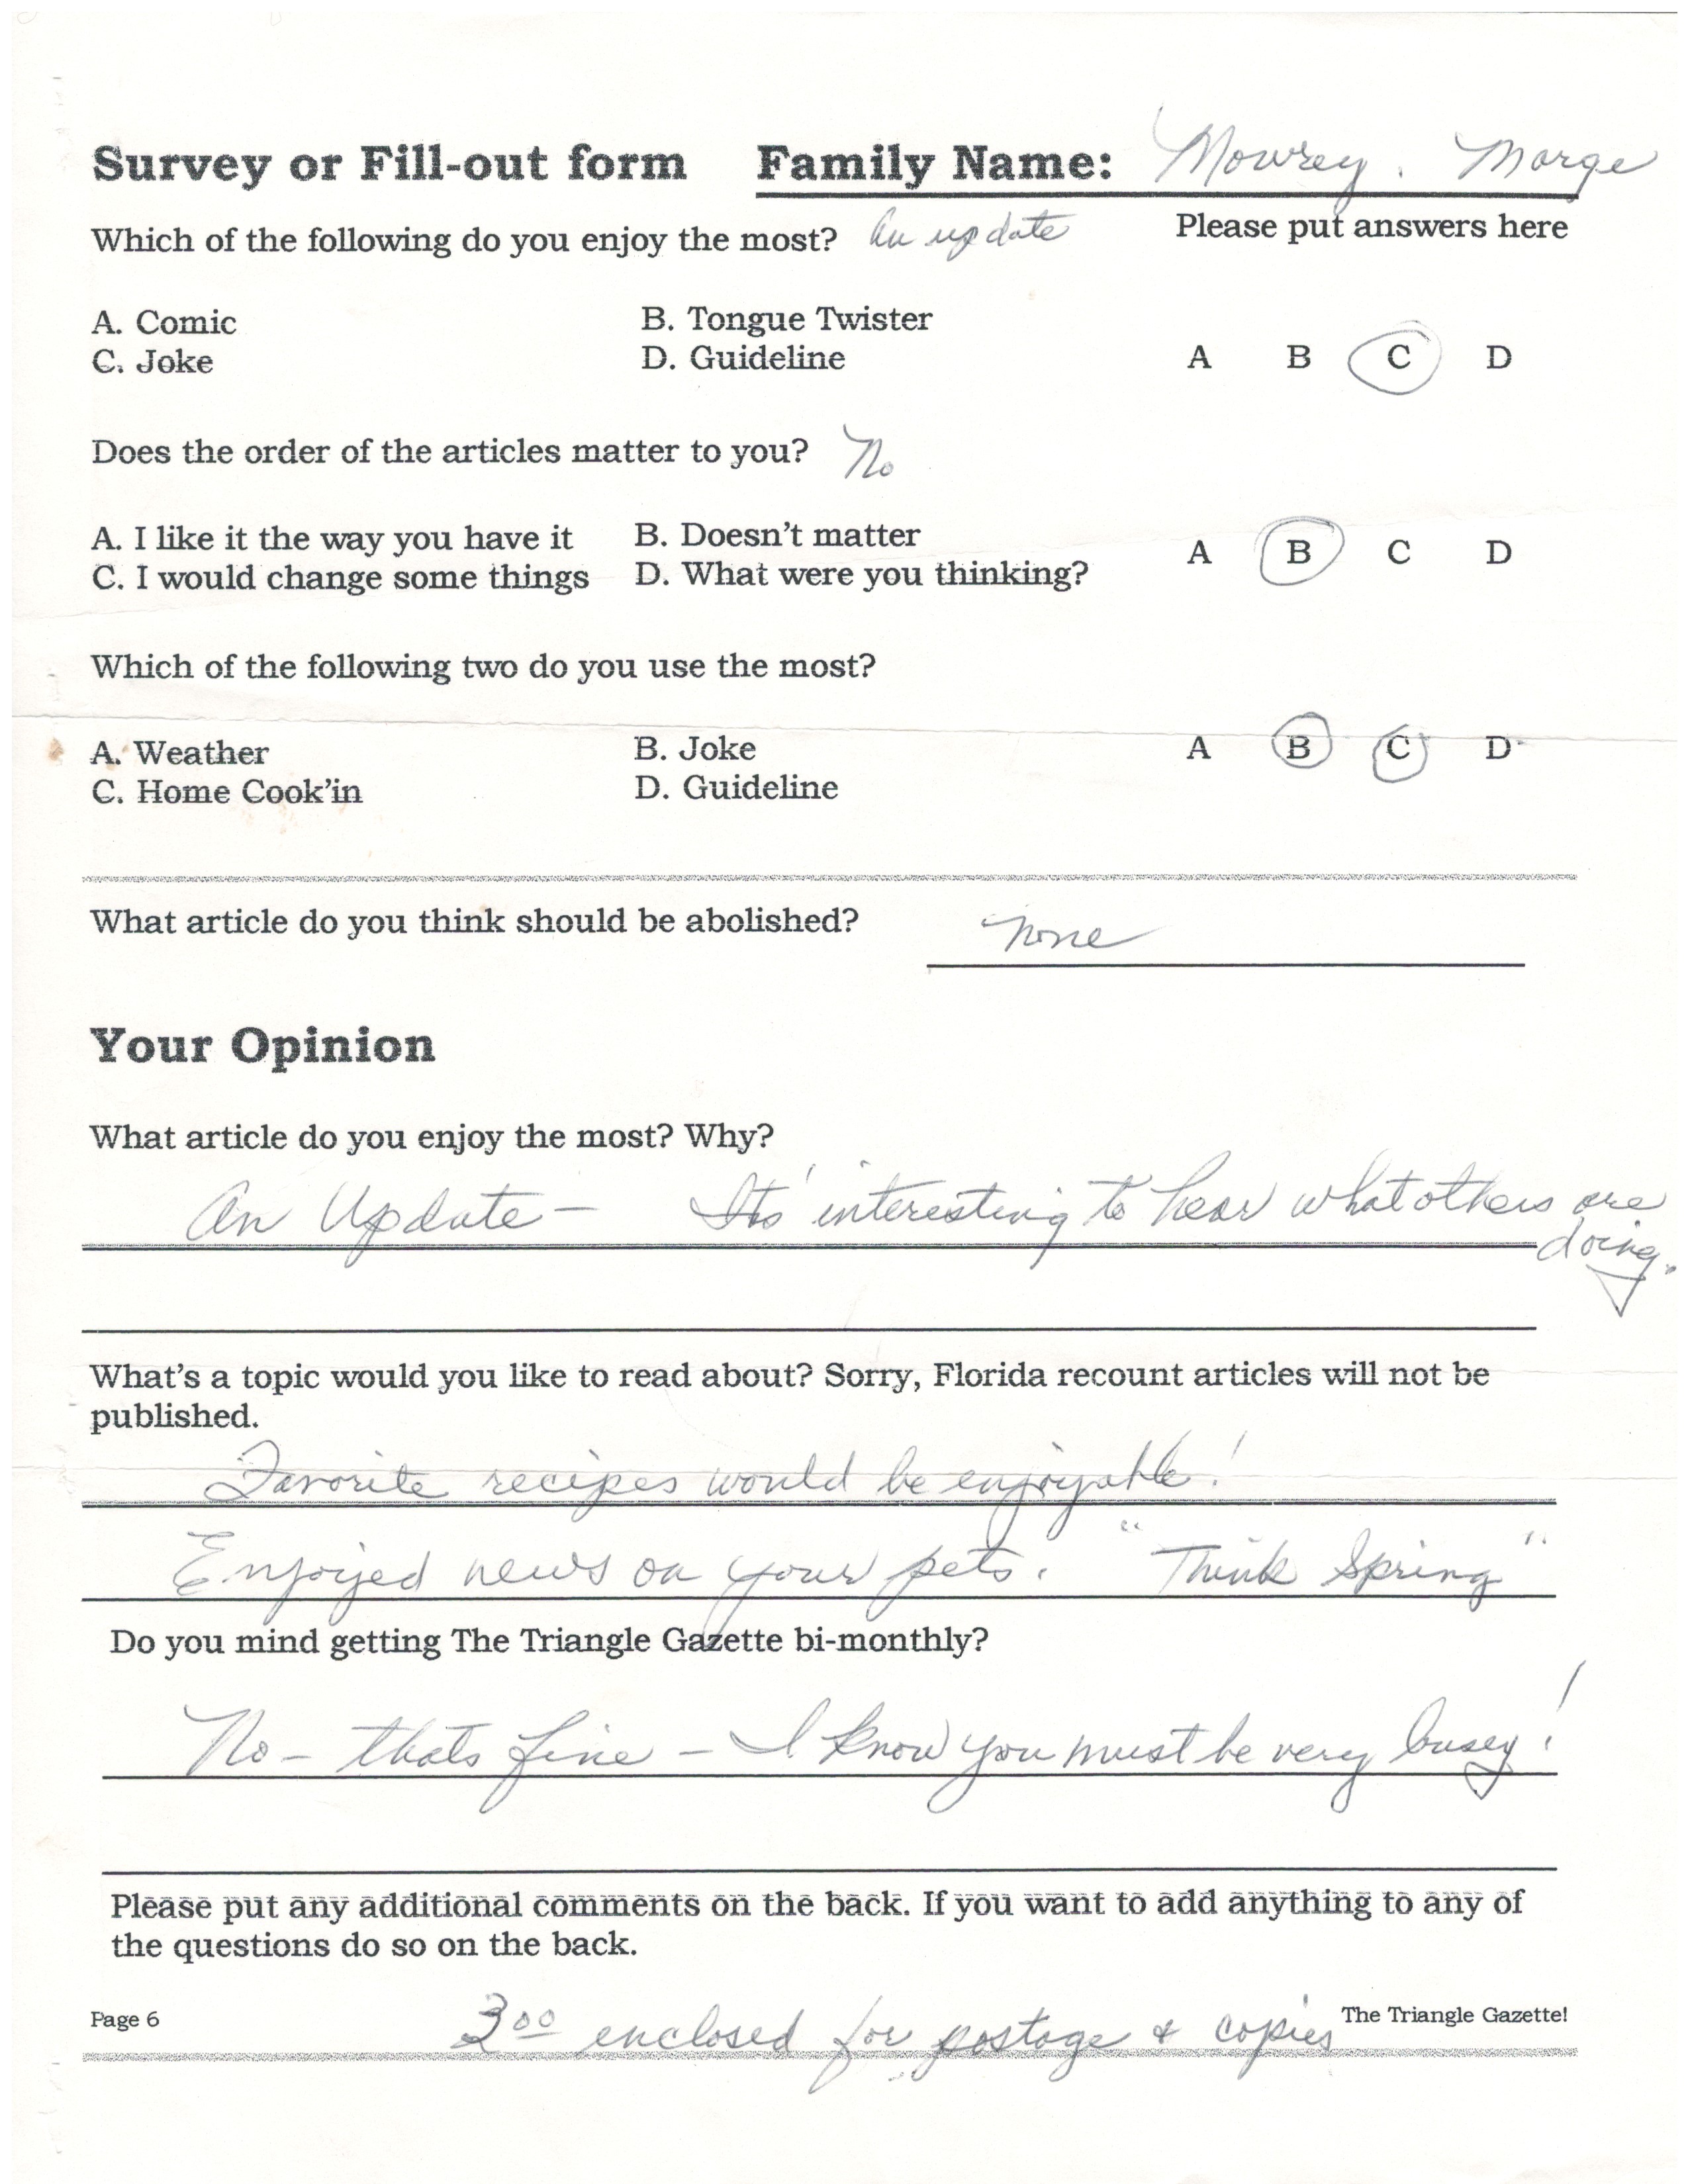 Survey or Fill-out form Family Name: Mowrey, Marge
Which of the following do you enjoy the most? An update Please put answers here
A. Comic B. Tongue Twister
C. Joke D. Guideline A B C D
Does the order of the articles matter to you? No
A. I like it the way you have it B. Doesn't matter A B C D
C. I would change some things D. What were you thinking?
Which of the following two do you use the most?
A. Weather B. Joke A B C D
C. Home Cook'in D. Guideline
What article do you think should be abolished? none
Your Opinion
What article do you enjoy the most? Why?
An Update – Its' interesting to hear what others are
doing.
What's a topic would you like to read about? Sorry, Florida recount articles will not be
published.
Favorite recipes would be enjoyable!
Enjoyed news on your pets. "Think Spring"
Do you mind getting The Triangle Gazette bi-monthly?
No – thats fine – I know you must be very busey!
Please put any additional comments on the back. If you want to add anything to any of
the questions do so on the back.
Page 6 3 00 enclosed for postage & copies The Triangle Gazette!